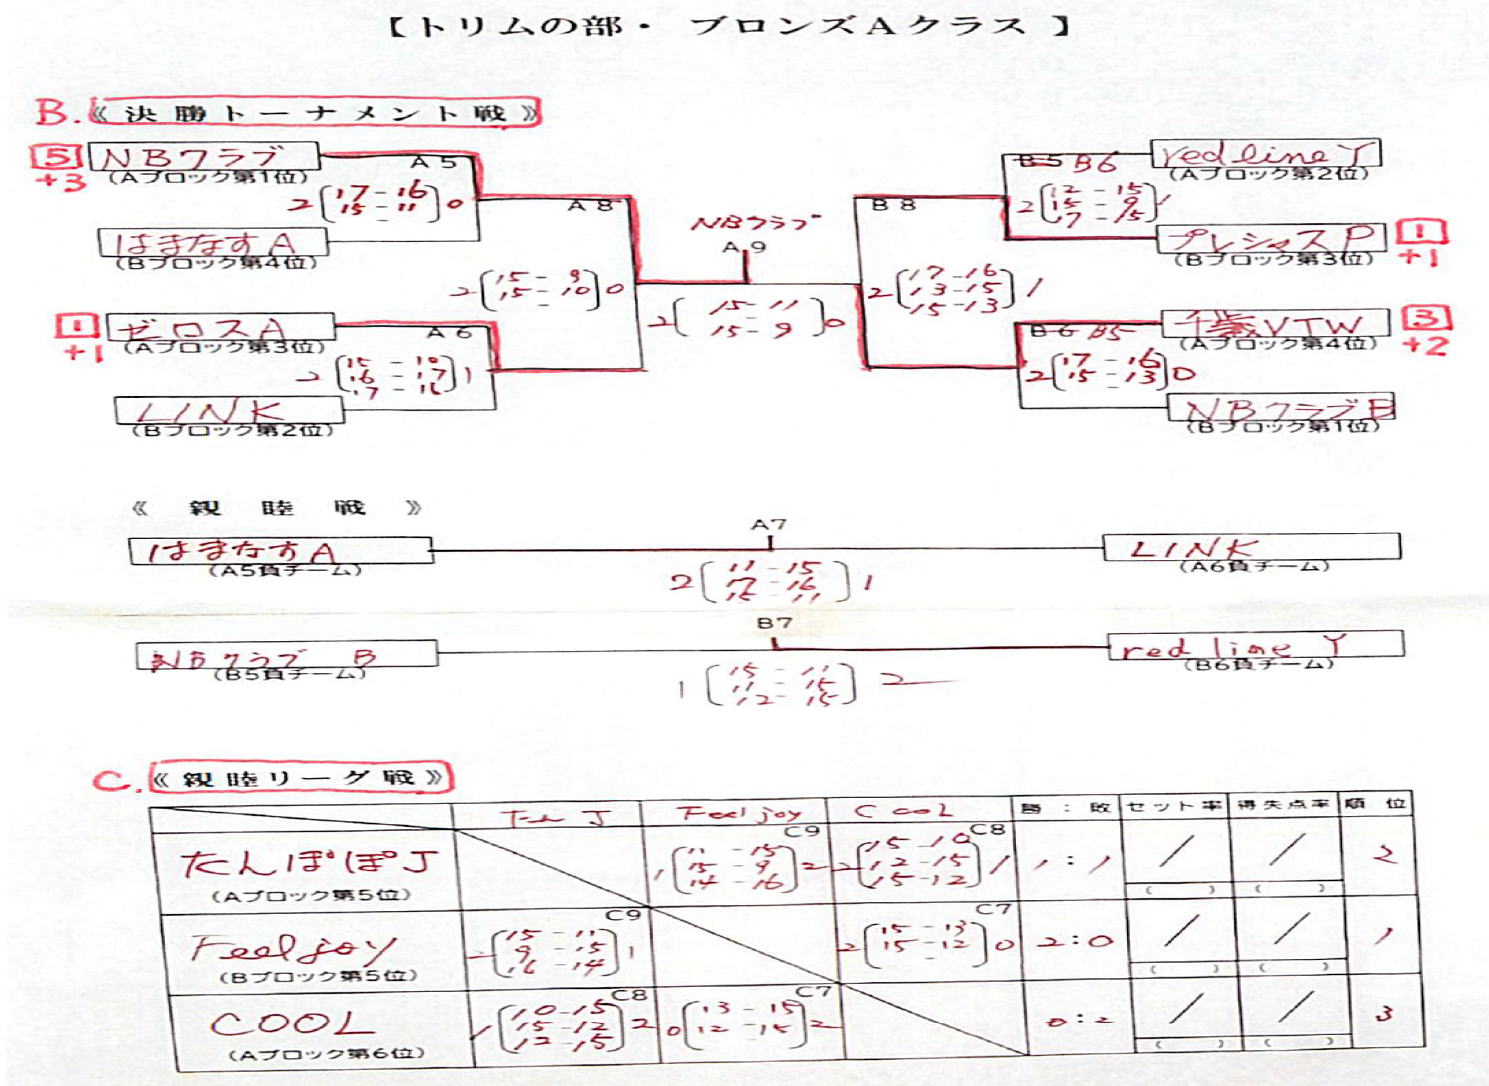 【トリムの部・ ブロンズAクラス 】
B.《決勝トーナメント戦》
5 NBクラブ A5
+3 (Aブロック第1位)
2(17-16 15-11)0
はまなすA
(Bブロック第4位)
A8
2(15-9 15-10)0
1 ゼロスA A6
+1 (Aブロック第3位)
2(15-10 16-17 17-16)1
LINK
(Bブロック第2位)
NBクラブ
A9
2(15-11 15-9)0
B5 B6 redlineY
(Aブロック第2位)
2(12-15 15-9 17-15)1
プレシャスP 1
(Bブロック第3位) +1
B8
2(17-16 13-15 15-13)1
B6 B5 千歳VTW 3
(Aブロック第4位) +2
2(17-16 15-13)0
NBクラブB
(Bブロック第1位)
《 親 睦 戦 》
はまなすA A7 LINK
(A5負チーム) (A6負チーム)
2(11-15 17-16 15-11)1
NBクラブ B B7 red line Y
(B5負チーム) (B6負チーム)
1(15-11 11-15 12-15)2
C.《親睦リーグ戦》
J Feel joy COOL 勝:敗 セット率 得失点率 順位
たんぽぽJ C9 1(11-15 15-9 14-16)2 C8 2(15-10 12-15 15-12)1 1:1 / / 2
(Aブロック第5位) ( ) ( )
Feel joy C9 2(15-11 9-15 16-14)1 C7 2(15-13 15-12)0 2:0 / / 1
(Bブロック第5位) ( ) ( )
COOL C8 1(10-15 15-12 12-15)2 C7 0(13-15 12-15)2 0:2 / / 3
(Aブロック第6位) ( ) ( )